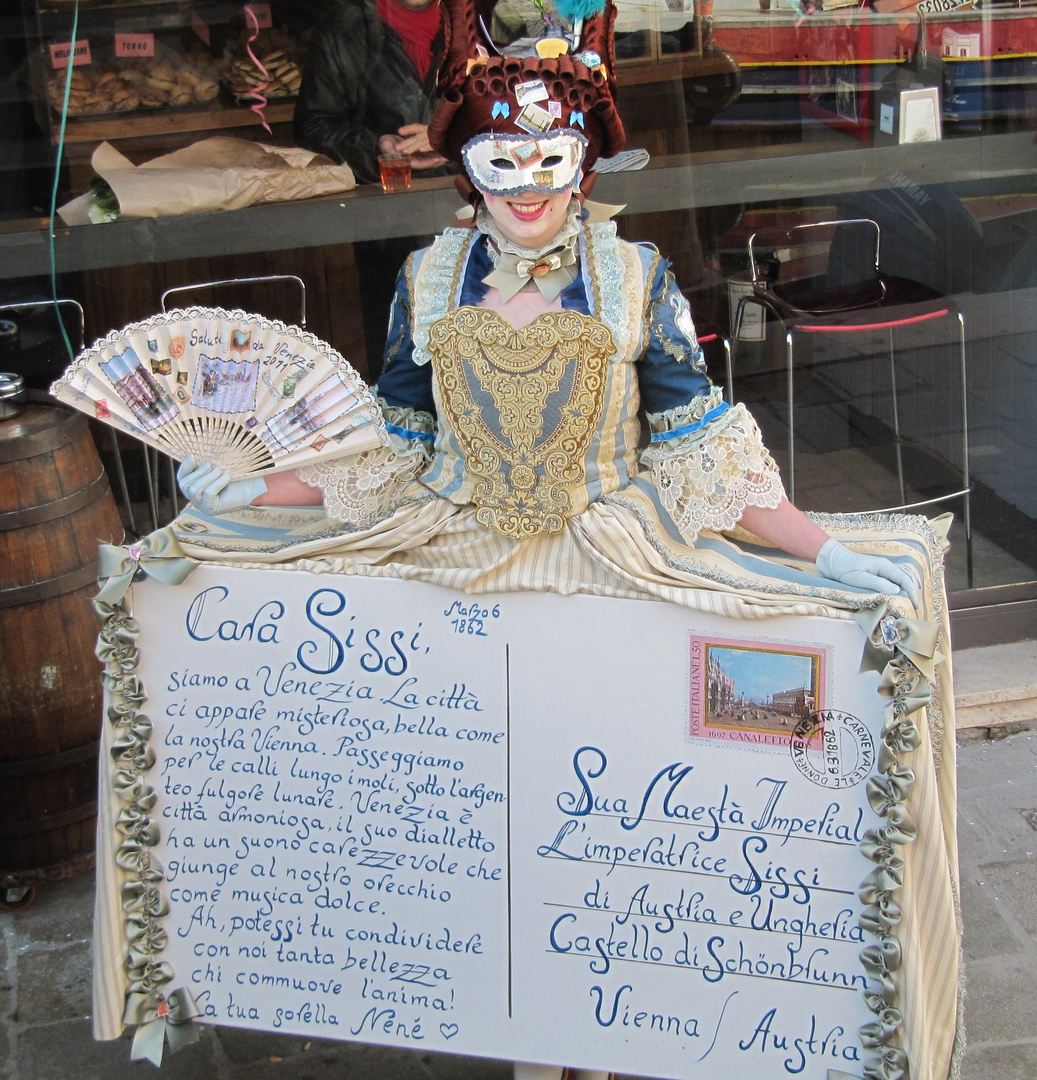 TONNO
Saluti da Venezia
2011
Cara Sissi,
Marzo 6
1862
siamo a Venezia. La città
ci appare misteriosa, bella come
la nostra Vienna. Passeggiamo
per le calli lungo i moli, sotto l'argen-
teo fulgore lunare. Venezia è
città armoniosa, il suo dialletto
ha un suono carezzevole che
giunge al nostro orecchio
come musica dolce.
Ah, potessi tu condividere
con noi tanta bellezza
chi commuove l'anima!
La tua sorella Nené ♡
POSTE ITALIANE L.50
1697 CANALETTO
VENEZIA
CARNEVALE
6.3.1862
Sua Maestà Imperial
L'imperatrice Sissi
di Austria e Ungheria
Castello di Schönbrunn
Vienna / Austria